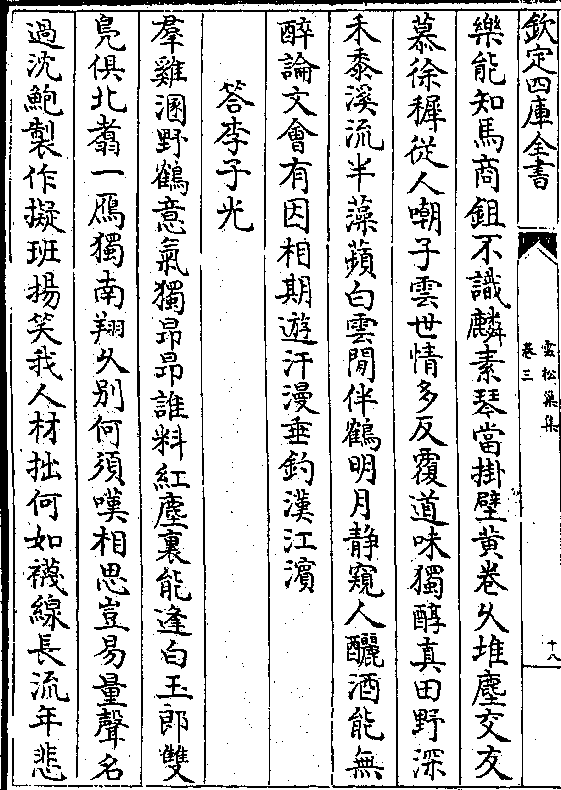 欽定四庫全書
雲松巢集
卷三
十八
樂能知馬商鉏不識麟素琴當掛壁黄卷乆堆塵交友
慕徐穉從人嘲子雲世情多反覆道味獨醇真田野深
禾黍溪流半藻蘋白雲閒伴鶴明月靜窺人釃酒能無
醉論文會有因相期遊汗漫垂釣漢江濱
答李子光
羣雞溷野鶴意氣獨昻昻誰料紅塵裏能逢白玉郎雙
鳬俱北翥一鴈獨南翔乆别何須嘆相思豈易量聲名
過沈鮑製作擬班揚笑我人材拙何如襪線長流年悲